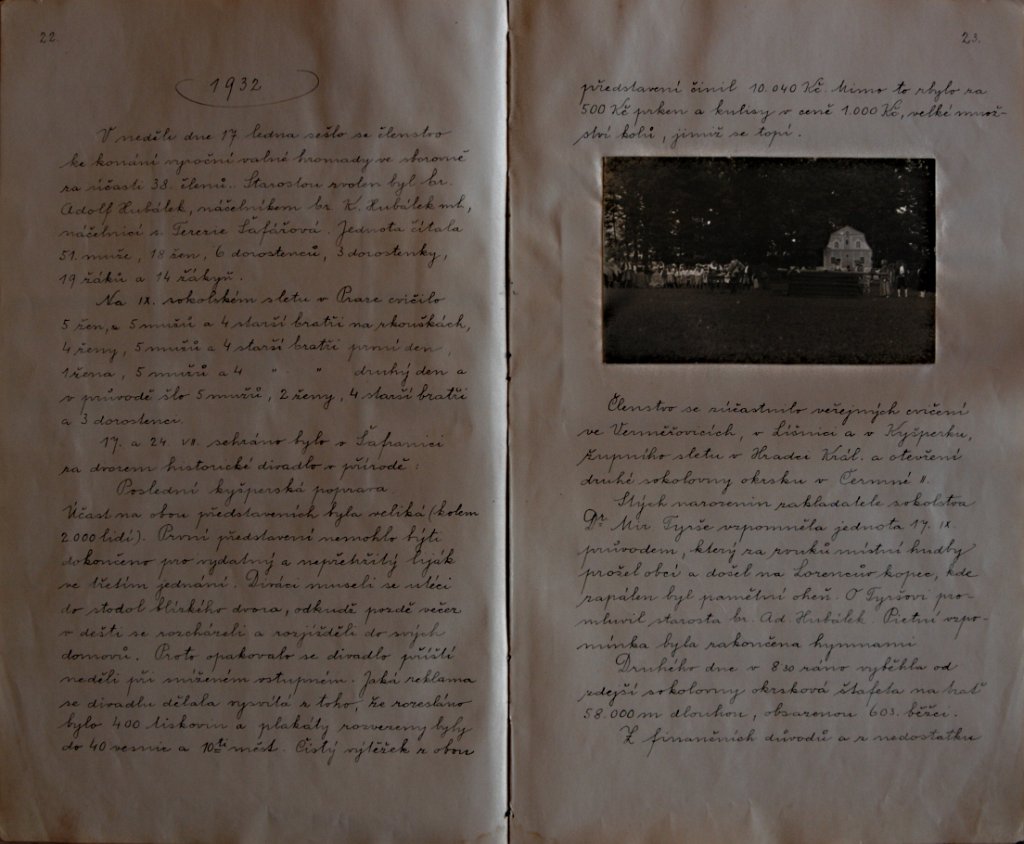 22.
1932
V neděli dne 17 ledna sešlo se členstvo
ke konání výroční valné hromady ve sborovně
za účasti 38. členů. Starostou zvolen byl br.
Adolf Hubálek, náčelníkem br. K. Hubálek ml,
náčelnicí s. Terezie Šafářová. Jednota čítala
51. muže, 18 žen, 6 dorostenců, 3 dorostenky,
19 žáků a 14 žákyň.
Na IX. sokolském sletu v Praze cvičilo
5 žen, 5 mužů a 4 starší bratři na zkouškách,
4 ženy, 5 mužů a 4 starší bratři první den,
1 žena, 5 mužů a 4 " " druhý den a
v průvodě šlo 5 mužů, 2 ženy, 4 starší bratři
a 3 dorostenci.
17. a 24. VII. sehráno bylo v Šafranici
za dvorem historické divadlo v přírodě:
Poslední kyšperská poprava.
Účast na obou představeních byla veliká (kolem
2.000 lidí). První představení nemohlo býti
dokončeno pro vydatný a nepřetržitý liják
ve třetím jednání. Diváci museli se utéci
do stodol blízkého dvora, odkudž pozdě večer
v dešti se rozcházeli a rozjížděli do svých
domovů. Proto opakovalo se divadlo příští
neděli při sníženém vstupném. Jaká reklama
se divadlu dělala vysvítá z toho, že rozesláno
bylo 400 tiskovin a plakáty rozveseny byly
do 40 vesnic a 10ti měst. Čistý výtěžek z obou
23.
představení činil 10.040 Kč. Mimo to zbylo za
500 Kč prken a kulisy v ceně 1.000 Kč, velké množ-
ství kolů, jimiž se topí.
Členstvo se súčastnilo veřejných cvičení
ve Verměřovicích, v Líšnici a v Kyšperku,
župního sletu v Hradci Král. a otevření
druhé sokolovny okrsku v Čermné II.
Stých narozenin zakladatele sokolstva
Dr. Mir. Tyrše vzpomněla jednota 17. IX.
průvodem, který za zvuků místní hudby
prošel obcí a došel na Lorencův kopec, kde
zapálen byl památní oheň. O Tyršovi pro-
mluvil starosta br. Ad. Hubálek. Pietní vzpo-
mínka byla zakončena hymnami
Druhého dne v 8 30 ráno vyběhla od
zdejší sokolovny okrsková štafeta na trať
58.000 m dlouhou, obsazenou 603. běžci.
Z finančních důvodů a z nedostatku